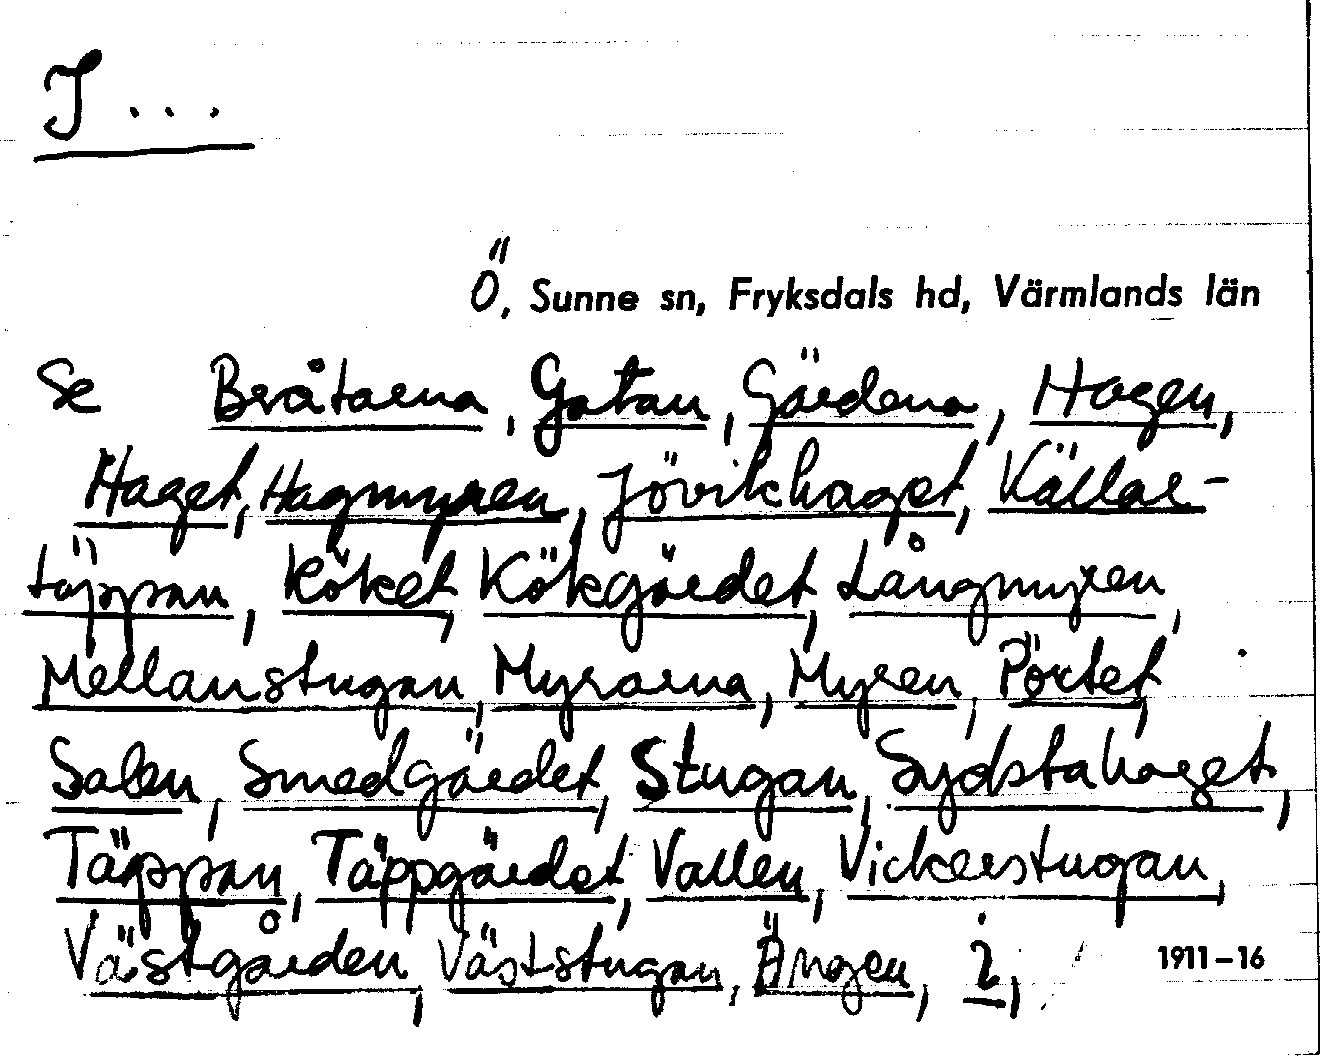 I...
Ö, Sunne sn, Fryksdals hd, Värmlands län
Se Bråtarna, Gatan, Gärdena, Hagen,
Haget, Hagmyren, Jövikhaget, Källar-
täppan, Köket, Kökgärdet, Långmyren,
Mellanstugan, Myrarna, Myren, Pörtet,
Salen, Smedgärdet, Stugan, Sydstahaget,
Täppan, Täppgärdet, Vallen, Vickerstugan,
Västgården, Väststugan, Ängen, i,
1911-16